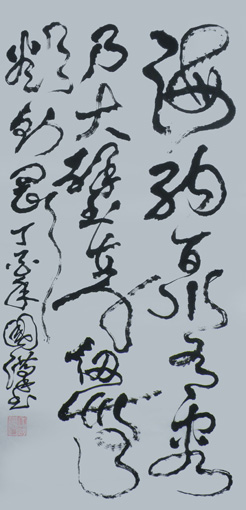 海納百川有容
乃大壁立千仞無
欲則剛 丁亥年國書